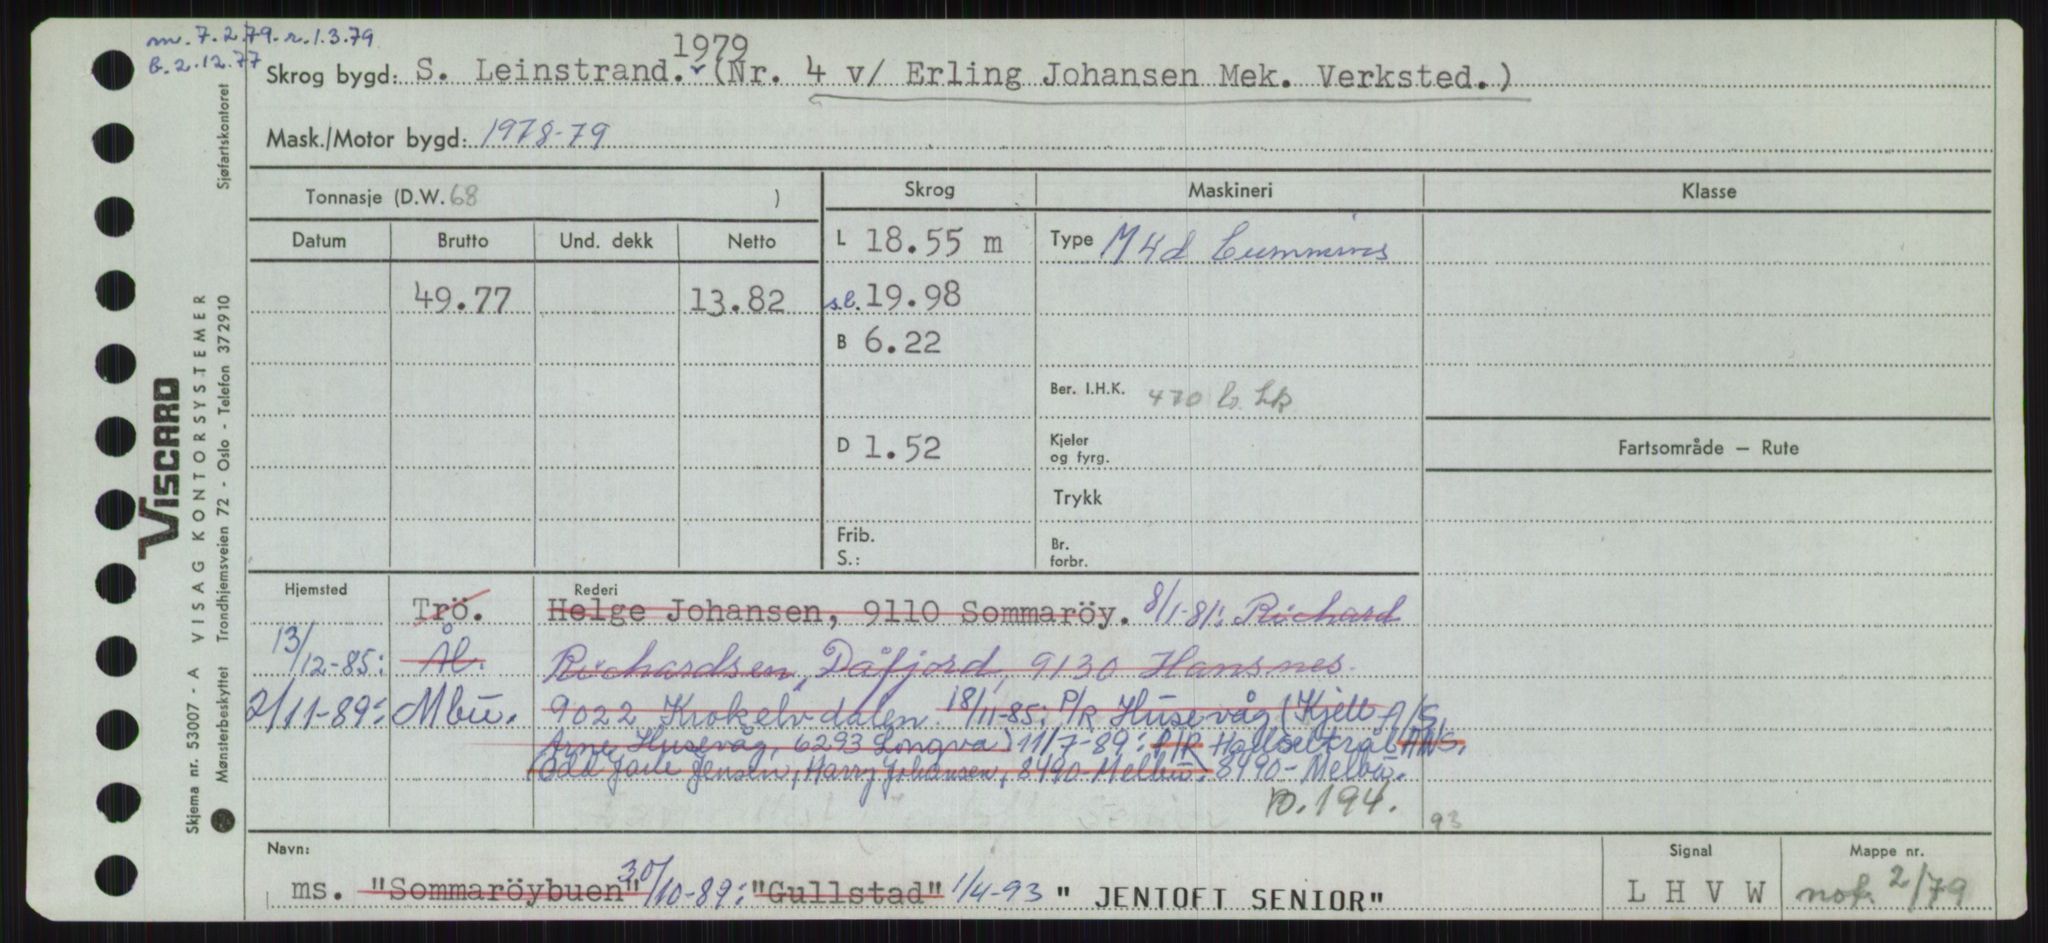 m. 7.2.79. r. 1.3.79
b. 2.12.77
1979
Skrog bygd: S. Leinstrand. (Nr. 4 v/ Erling Johansen Mek. Verksted.)
Mask./Motor bygd: 1978-79
Tonnasje (D.W. 68 )
Skrog Maskineri Klasse
Datum Brutto Und. dekk Netto
L 18.55 m Type M4d Cummins
49.77 13.82 s.l. 19.98
B 6.22
Ber. I.H.K. 470 b. hk
D 1.52 Kjeler og fyrg.
Fartsområde — Rute
Trykk
Frib. S.: Br. forbr.
Hjemsted Rederi
Trö. Helge Johansen, 9110 Sommaröy. 8/1-81: Richard
13/12-85: Ål. Richardsen, Dåfjord, 9130 Hansnes.
2/11-89: Mbu. 9022 Krokelvdalen. 18/11-85: P/R Husevåg (Kjell
Arne Husevåg, 6293 Longva) 11/7-89: P/R Hadseltrål A/S.
(Odd Jarle Jensen, Harry Johansen, 8490-Melbu. 8490-Melbu.
p. 194.
93
Navn: Signal Mappe nr.
ms. "Sommaröybuen" 30/10-89: "Gullstad" 1/4-93 " JENTOFT SENIOR" L H V W not. 2/79
VISCARD
VISAG KONTORSYSTEMER
Skjema nr. 53007 - A
Mønsterbeskyttet Trondhjemsveien 72 - Oslo - Telefon 37 29 10
Sjøfartskontoret